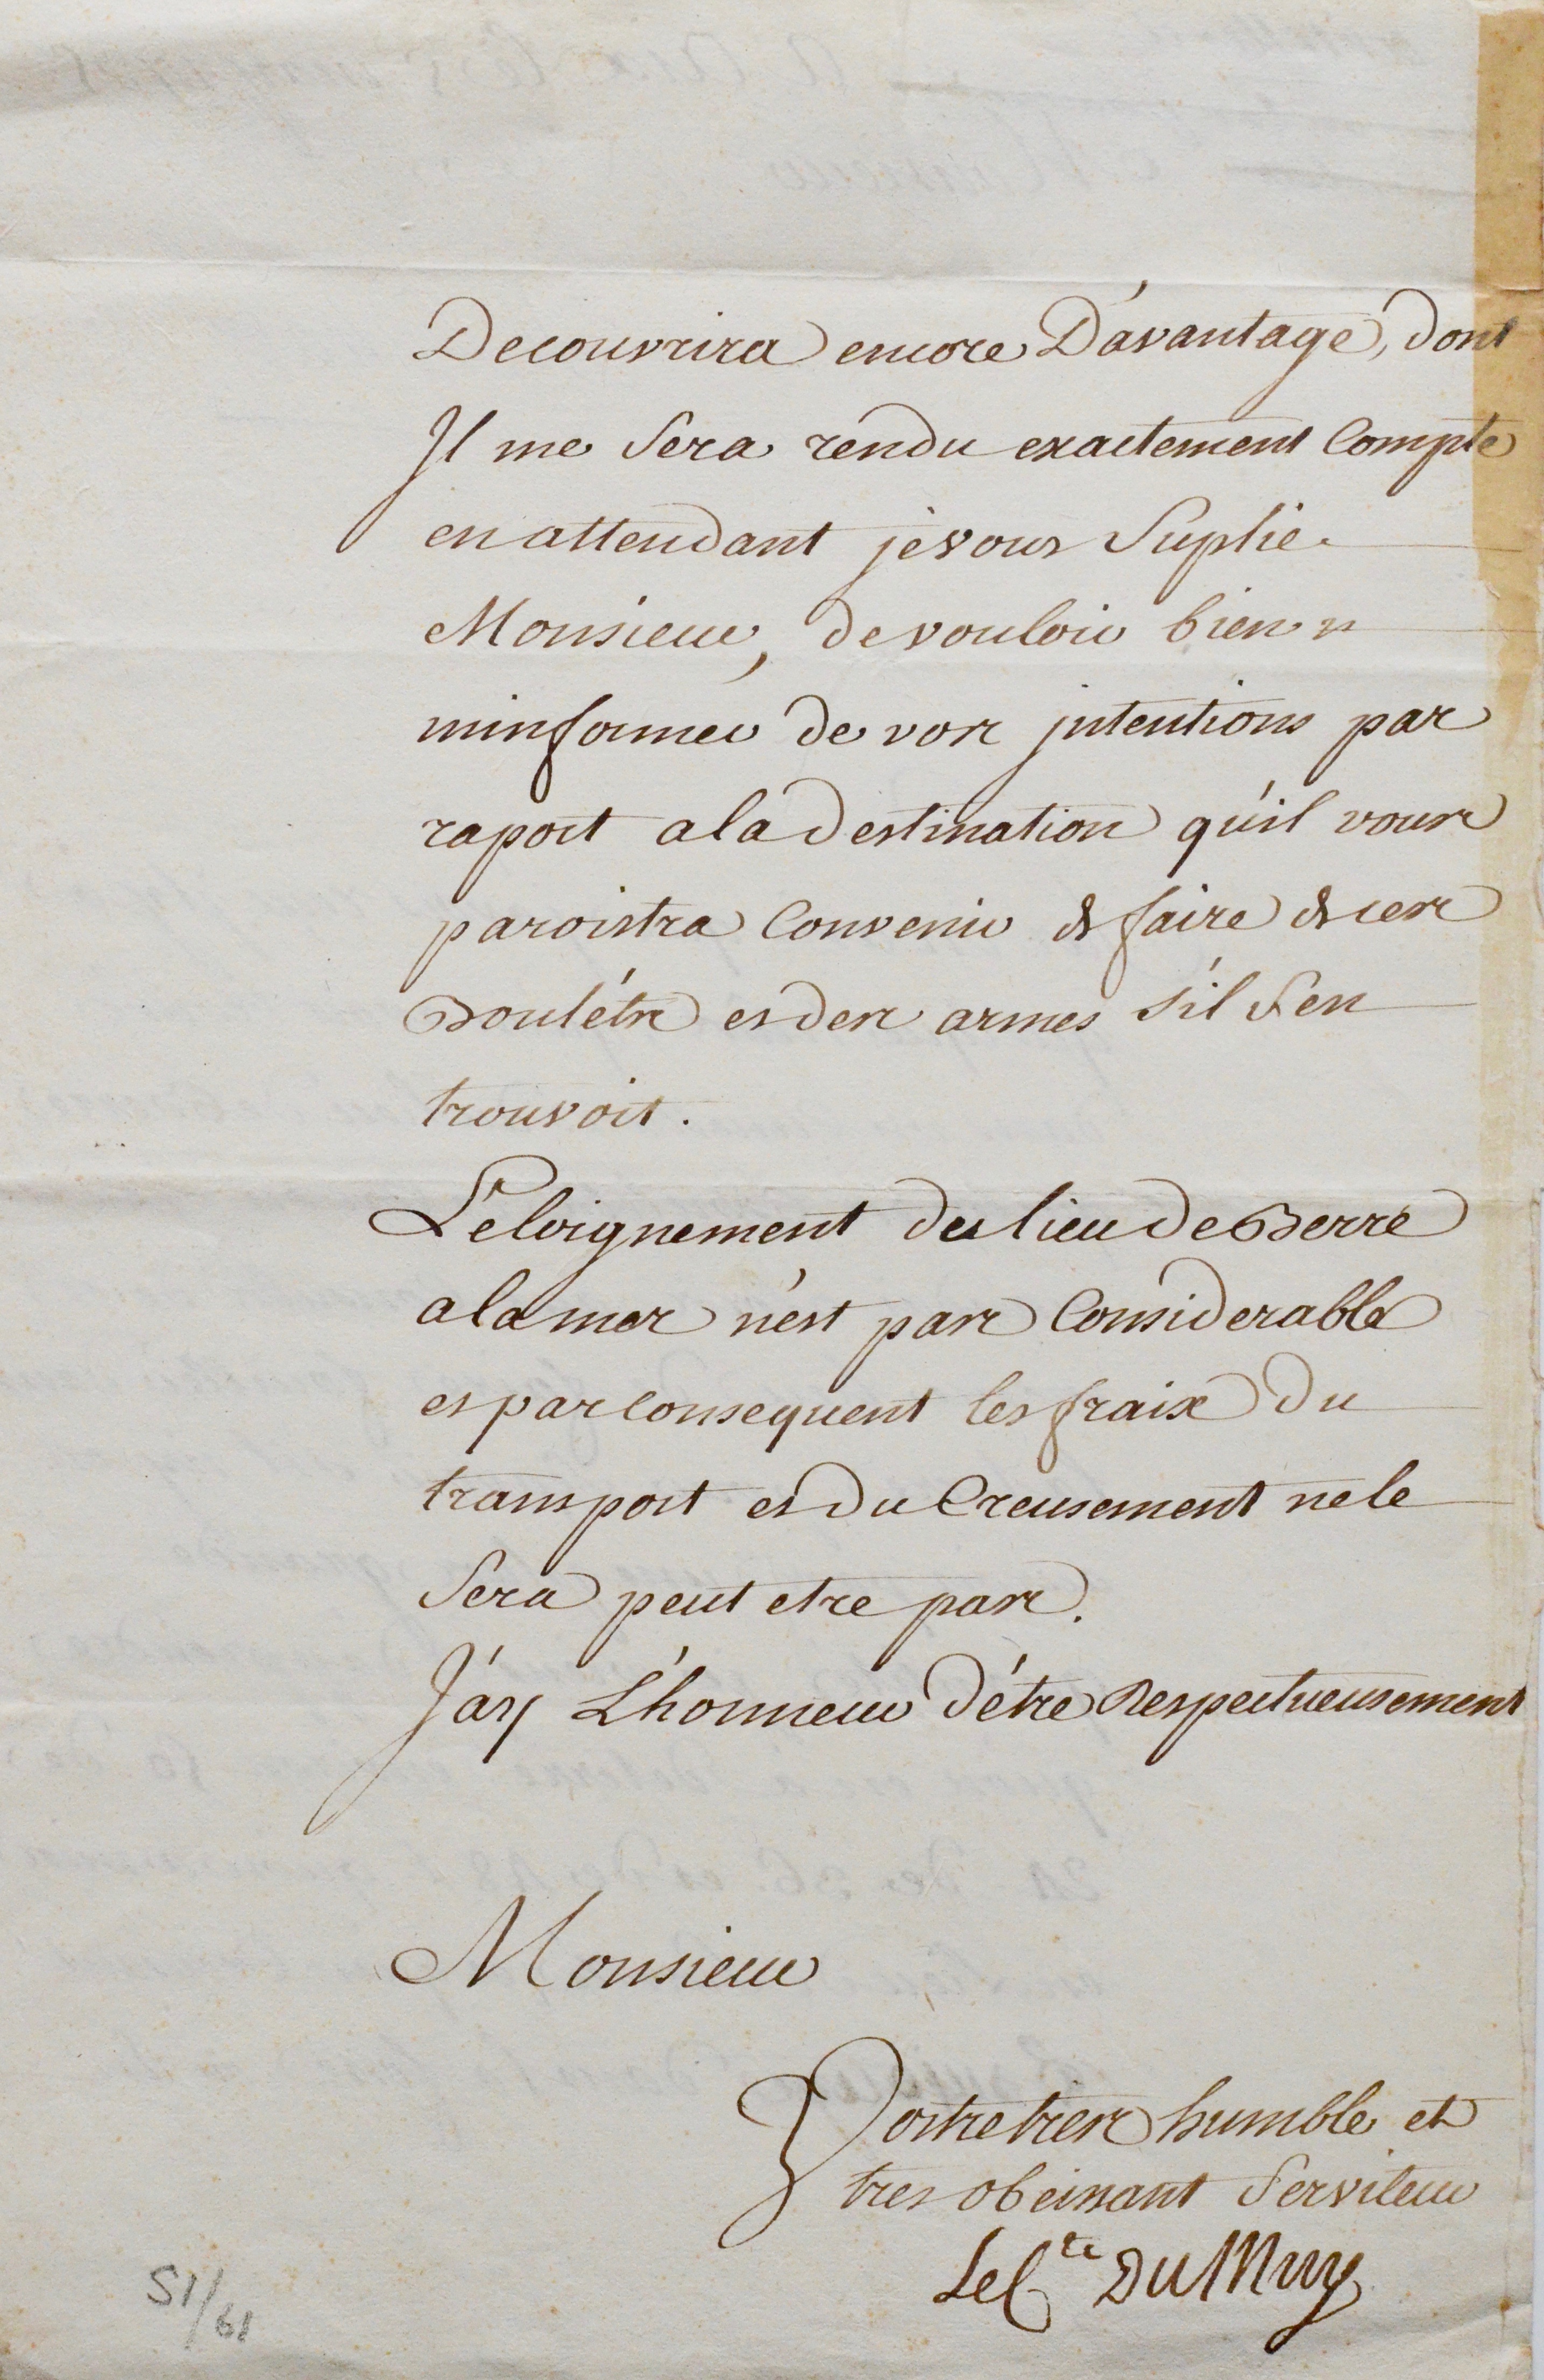 Decouvrira encore D'avantage, dont
Jl me Sera rendu exactement Compte
en attendant je vous Suplie
Monsieur, de vouloir bien
minformer de vos jntentions par
raport a la destination qu'il vous
paroistra Convenir de faire de ces
Boulétz et des armes s'il S'en
trouvoit.
L'eloignement du lieu de Berre
a la mer n'est pas Considerable
et par Consequent les fraix du
transport et du Creusement ne le
Sera peut etre pas.
J'ay L'honneur d'étre Respectueusement
Monsieur
Vostre tres humble et
tres obeissant Serviteur
Le C.te Du Muy
S1/61